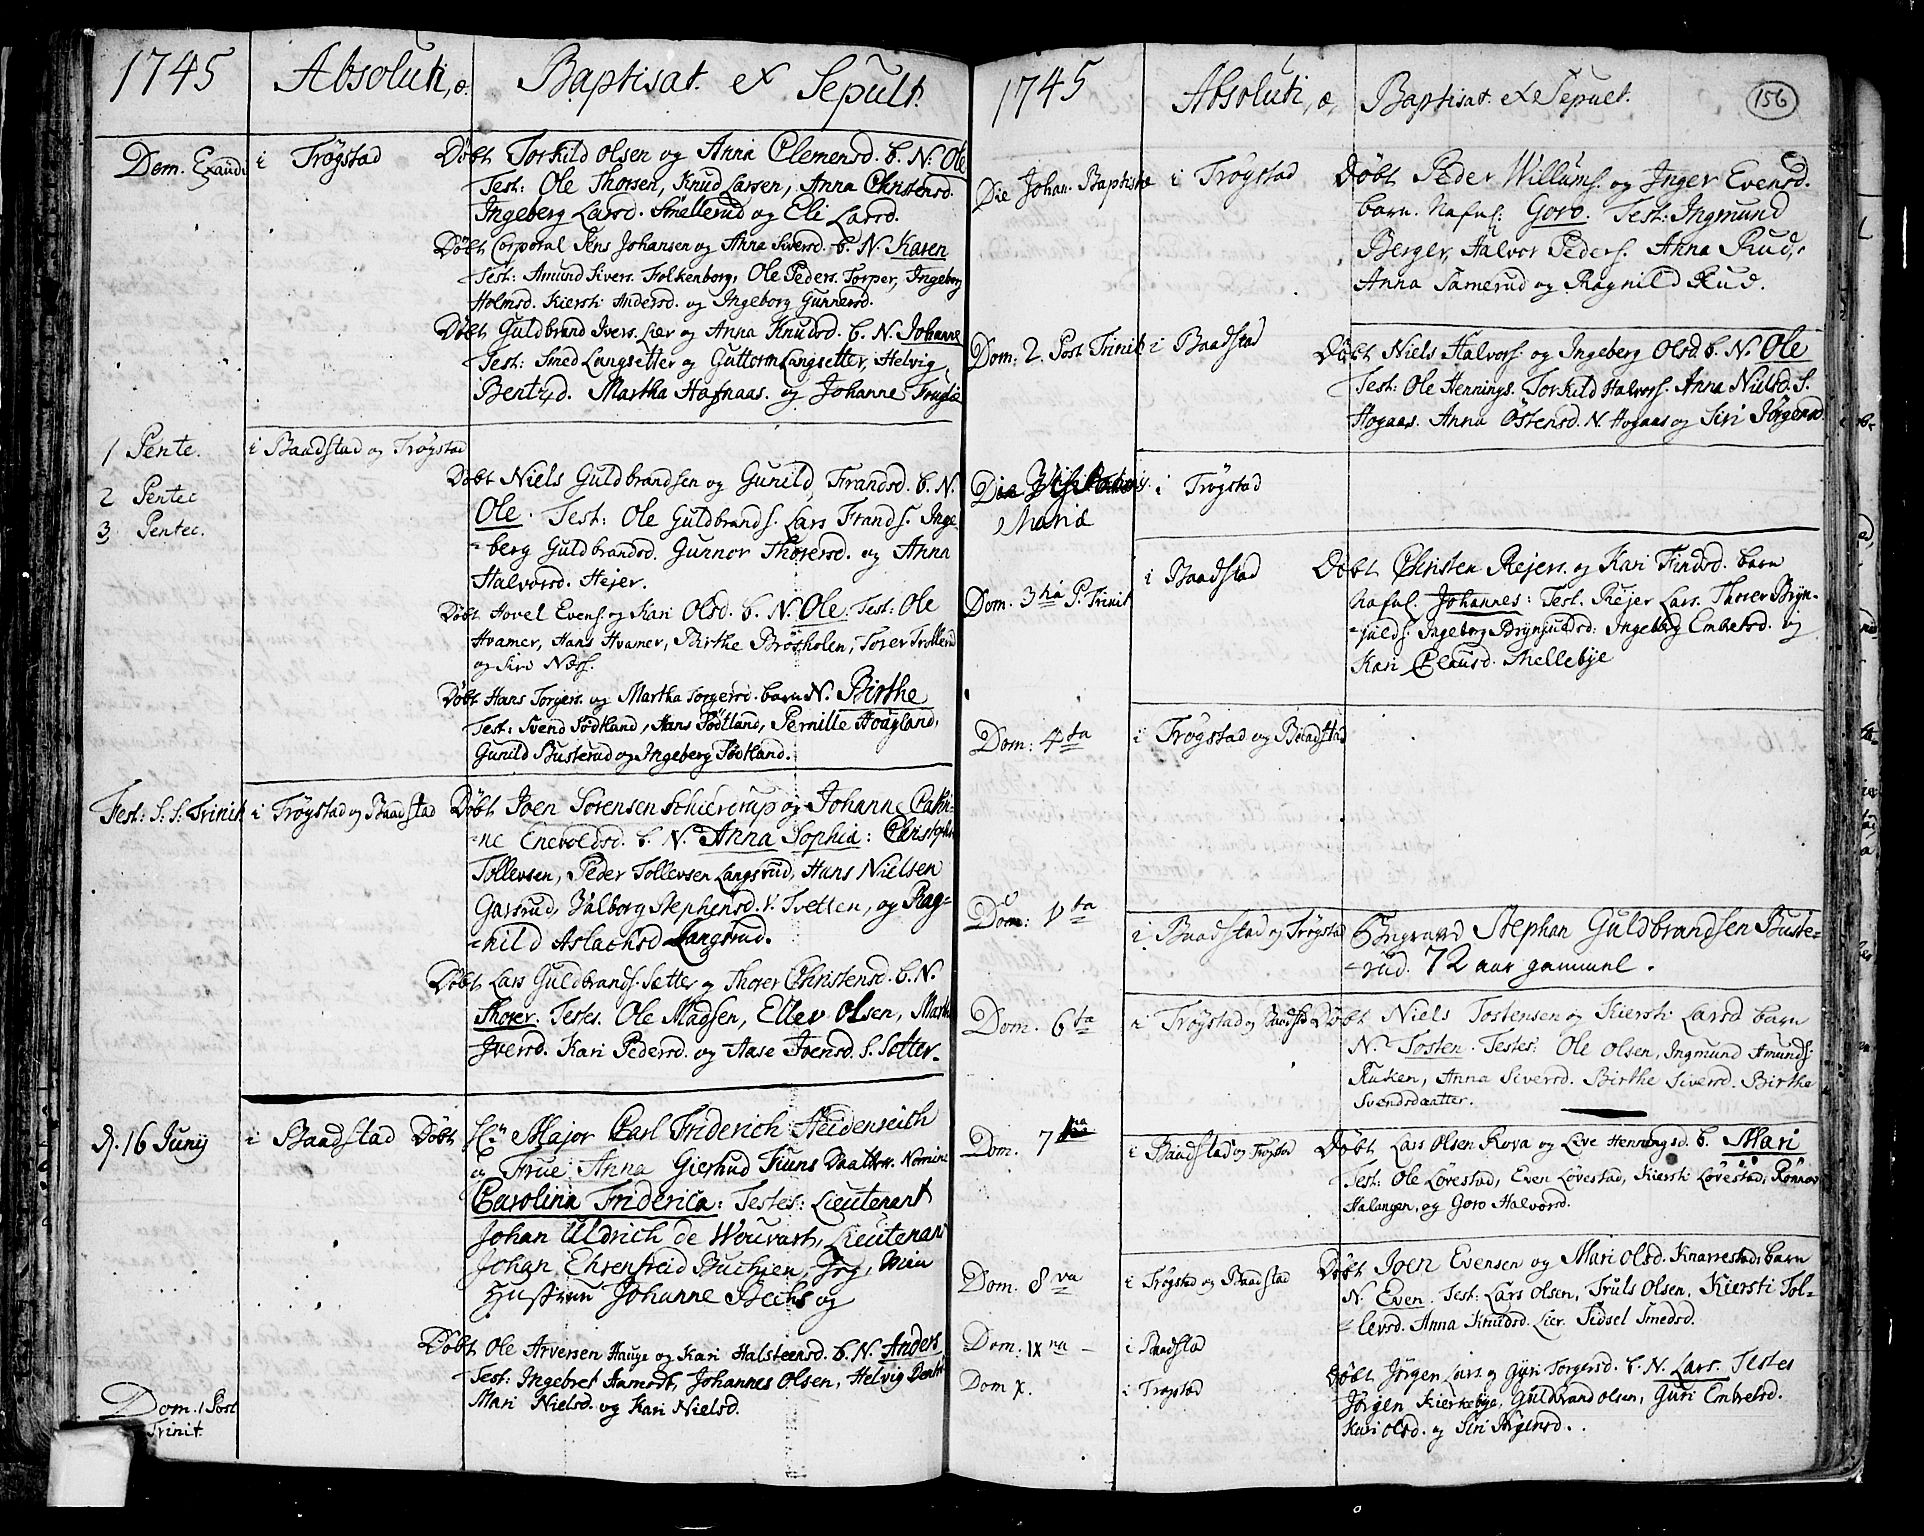 1745 Absoluti, æ. Baptisat. et Sepult.
Dom. Exaudi i Trøgstad Døbt Torkild Olsen og Anna Clemensd. b. N: Ole
Test: Ole Thorsen, Knud Larsen, Anna Christensd.
Ingeberg Larsd. Smellerud og Eli Larsd.
Døbt Corporal Jens Johansen og Anna Siversd. b. N. Karen
Test: Amund Sivers. Folkenborg, Ole Peders. Torper, Ingeborg
Holmsd. Kiersti Andersd. og Ingeborg Gunnersd.
Døbt Guldbrand Ivers. Lier og Anna Knudsd. b. N. Johanne
Test: Smed Langsetter og Guttorm Langsetter, Helvig
Martha Hafnaas. og Johanne
1 Pente. i Baadstad og Trøgstad
Døbt Niels Guldbrandsen og Gunild Frandsd. b. N.
2 Pentec
Ole. Test: Ole Guldbrands. Lars Frands. Inge-
3 Pentec.
-berg Guldbrandsd. Gunnor Thorersd. og Anna
Halvorsd. Hejer.
Døbt Hovel Evens. og Kari Olsd. b. N. Ole. Test: Ole
Hvamer, Hans Hvamer, Birthe Brøsholen, Torer Trollerud
og Siri Næss.
Døbt Hans Torgers. og Martha Torgersd. barn N. Birthe
Test: Svend Sødtland, Hans Sødtland, Pernille Hougland,
Gunild Busterud og Ingeberg Sødtland.
Fest: S. S. Trinit. i Trøgstad og Baadstad Døbt Joen Sørensen Schiercrup og Johanne Cathri-
-ne Enevoldsd. b. N. Anna Sophia: Christopher
Tollevsen, Peder Tollevsen Langsrud, Hans Nielsen
Garsrud, Valborg Stephensd. V. Tvetten, og Rag-
-nild Aslachsd Langsrud.
Døbt Lars Guldbrands. Sætter og Thorer Christensd. b. N.
Thorer. Testes. Ole Madsen, Ellev Olsen, Marthe
Iversd. Kari Pedersd. og Aase Joensd. S. Sætter.
d. 16 Junij i Baadstad Døbt Hr. Major Carl Friderich Heidenreich
og Frue Anna Giertrud Daatter. Nomine
Carolina Friderica: Testes: Lieutenant
Johan Uldrich de Wouvart, Lieutenant
Johan Ehrenfreid Büchjen, Jeg, Min
Hustrue Johanne og
Døbt Ole Arversen Hauge og Kari Halsteensd. b. N. Anders
Test: Ingebret Hamodt, Johannes Olsen, Helvig
Mari Nielsd. og Kari Nielsd.
Dom. 1 Post
Trinit.
1745 Absoluti, æ, Baptisat. et Sepult. 156
Die Johan. Baptistæ i Trøgstad Døbt Peder Willums. og Inger Evensd.
barn. Nafnl: Goro. Test: Ingmund
Berger, Halvor Peders. Anna Rud,
Anna Samerud og Ragnild Rud.
Dom: 2. Post Trinit i Baadstad Døbt Niels Halvors. og Ingeberg Olsd. b. N. Ole
Test: Ole Hennings. Torkild Halvors. Anna Nielsd. S.
Hogaas. Anna Østensd. N. Hogaas og Siri Jørgensd.
Die Visitationis i Trøgstad
Mariæ
Dom. 3tia P. Trinit i Baadstad Døbt Christen Rejers. og Kari Findsd. barn
Nafnl. Johannes: Test. Rejer Lars. Thorer Bryn-
-julds. Ingeborg Brynjuldsd: Ingeberg Embretsd. og
Kari Clausd. Mellebye
Dom: 4ta i Trøgstad og Baadstad
Dom: Vta i Baadstad og Trøgstad Begraved Stephan Guldbrandsen Buste-
-rud. 72 aar gammel.
Dom. 6ta i Trøgstad og Baadstad Døbt Niels Tostensen og Kiersti Larsd barn
N. Tosten. Testes: Ole Olsen, Ingmund Amunds.
Ruken, Anna Siversd. Birthe Siversd. Birthe
Svendsdaatter.
Dom. 7 i Baadstad og Trøgstad Døbt Lars Olsen Rova og Live Henningsd. b. Mari
Test: Ole Løvestad, Even Løvestad, Kiersti Løvestad, Rønnov
Halangen, og Goro Halvorsd.
Dom. 8va i Trøgstad og Baadstad Døbt Joen Evensen og Mari Olsd. Knarrestad, barn
N. Even. Test: Lars Olsen, Truls Olsen, Kiersti Tol-
-levsd. Anna Knudsd. Lier. Sidsel Smedsd.
Dom: IXna - i Baadstad
Dom X. i Trøgstad Døbt Jørgen Lars. og Gyri Torgersd. b. N. Lars. Testes
Jørgen Kierkebye, Guldbrand Olsen, Guri Embretsd.
Kari Olsd. og Siri Jørgensd.